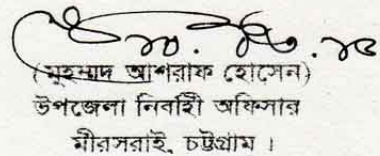 (মুহম্মদ আশরাফ হোসেন)
উপজেলা নির্বাহী অফিসার
মীরসরাই, চট্টগ্রাম ।